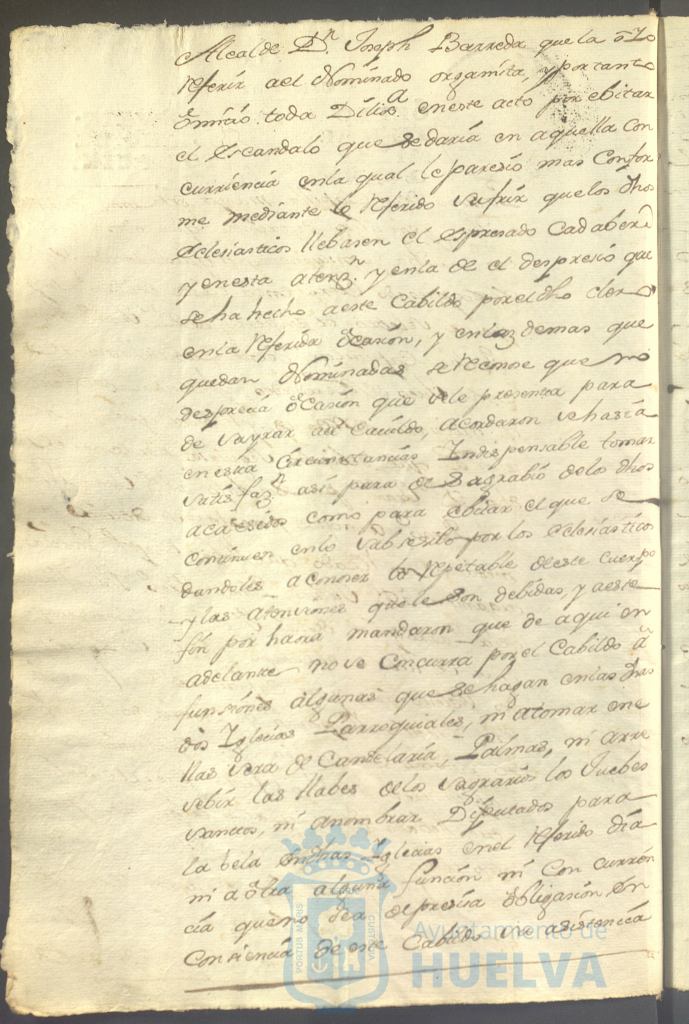 Alcalde Dn. Joseph Barreda que la
referir a el Nominado organista, y por tanto
omitió toda Dilixa. en este acto por ebitar
el escandaló que se daría en aquella con
curriencia en la qual le paresio mas confor
me mediante lo referido sufrir que los dhos
eclesiasticos llebasen el espresado Cadaber
y en esta atenzn. y en la de el despresió que
se ha hecho a este Cabildo por el dho clero
en la referida ocasión, y en las demas que
quedan Nominadas se reconose que no
despresia ocasión que se le presenta para
de sayrar au Cauildo, acordaron se hasia
en estas circunstancias Indispensable tomar
satisfazn. así para de sagrabió de lo dhos
acaesidos como para ebitar el que se
continuen en lo subsesibo por los eclesiastico
dandoles a conoser lo respetable de este cuerpo
y las atensiones que le son debidas, y a este
fin por haora mandaron que de aqui en
adelante no se concurra por el Cabildo â
funsiónes algunas que se hagan en las dhas
dos Iglecias Parroquiales, ni a tomar en e
llas sera de Candelaria, Palmas, ni a rre
sebir las llabes de los sagrarios los Juebes
sanctos, ni a nombrar Diputados para
la bela en dhas Iglecias en el referido día
ni a otra alguna función ni con curren
cia que no sea de presisa obligasion en
consiencia de este Cabildo su asistencia
PORTUS MARIS
CUSTODIA
Ayuntamiento de
HUELVA